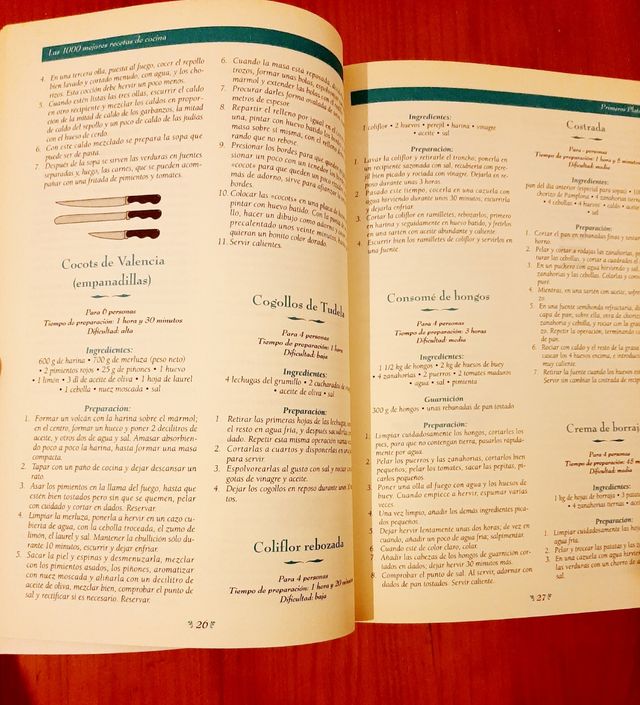 Las 1000 mejores recetas de cocina
4. En una tercera olla, puesta al fuego, cocer el repollo
bien lavado y cortado menudo, con agua, y los cho-
rizos. Esta cocción debe hervir un poco menos.
5. Cuando estén listas las tres ollas, escurrir el caldo
en otro recipiente y mezclar los caldos en propor-
ción de la mitad de caldo de los garbanzos, la mitad
de caldo del repollo y un poco de caldo de las judías
con el hueso de cerdo.
6. Con este caldo mezclado se prepara la sopa que
puede ser de pasta.
7. Después de la sopa se sirven las verduras en fuentes
separadas y, luego, las carnes, que se pueden acom-
pañar con una fritada de pimientos y tomates.
Cocots de Valencia
(empanadillas)
Para 6 personas
Tiempo de preparación: 1 hora y 30 minutos
Dificultad: alta
Ingredientes:
600 g de harina • 700 g de merluza (peso neto)
• 2 pimientos rojos • 25 g de piñones • 1 huevo
• 1 limón • 3 dl de aceite de oliva • 1 hoja de laurel
• 1 cebolla • nuez moscada • sal
Preparación:
1. Formar un volcán con la harina sobre el mármol;
en el centro, formar un hueco y poner 2 decilitros de
aceite, y otros dos de agua y sal. Amasar absorbien-
do poco a poco la harina, hasta formar una masa
compacta.
2. Tapar con un paño de cocina y dejar descansar un
rato.
3. Asar los pimientos en la llama del fuego, hasta que
estén bien tostados pero sin que se quemen, pelar
con cuidado y cortar en dados. Reservar.
4. Limpiar la merluza, ponerla a hervir en un cazo cu-
bierta de agua, con la cebolla troceada, el zumo de
limón, el laurel y sal. Mantener la ebullición sólo du-
rante 10 minutos, escurrir y dejar enfriar.
5. Sacar la piel y espinas y desmenuzarla, mezclar
con los pimientos asados, los piñones, aromatizar
con nuez moscada y aliñarla con un decilitro de
aceite de oliva, mezclar bien, comprobar el punto de
sal y rectificar si es necesario. Reservar.
6. Cuando la masa esta reposada,
trozos, formar unas bolas,
mármol y extender las bolas con el
7. Procurar darles forma ovalada de
metros de espesor
8. Repartir el relleno por igual en el
una, pintar con huevo batido los bordes
masa sobre si misma, con el relleno
rando que no rebose.
9. Presionar los bordes para que queden
sionar un poco con un tenedor los
«cocots» para que queden un poco
más de adorno, sirve para
bordes.
10. Colocar las «cocots» en una placa de
pintar con huevo batido. Con la punta
llo, hacer un dibujo como adorno
precalentado unos veinte minutos,
quieran un bonito color dorado.
11. Servir calientes.
Cogollos de Tudela
Para 4 personas
Tiempo de preparación: 1 hora
Dificultad: baja
Ingredientes:
4 lechugas del grumillo • 2 cucharadas de
• aceite de oliva • sal
Preparación:
1 Retirar las primeras hojas de las lechugas,
el resto en agua fría, y después sacudirlas
dado. Repetir esta misma operación varias
2 Cortarlas a cuartos y disponerlas en una
para servir.
3 Espolvorearlas al gusto con sal y rociar con
gotas de vinagre y aceite.
4 Dejar los cogollos en reposo durante unos
tos.
Coliflor rebozada
Para 4 personas
Tiempo de preparación: 1 hora y 20 minutos
Dificultad: baja
26
Primeros Plat
Ingredientes:
1 coliflor • 2 huevos • perejil • harina • vinagre
• aceite • sal
Preparación:
1 Lavar la coliflor y retirarle el troncho; ponerla en
un recipiente sazonada con sal, recubrirla con pere-
jil bien picado y rociada con vinagre. Dejarla en re-
poso durante unas 3 horas.
2 Pasado este tiempo, cocerla en una cazuela con
agua hirviendo durante unos 30 minutos, escurrirla
y dejarla enfriar.
3 Cortar la coliflor en ramilletes, rebozarlos, primero
en harina y seguidamente en huevo batido, y freírlos
en una sartén con aceite abundante y caliente.
4 Escurrir bien los ramilletes de coliflor y servirlos en
una fuente
Consomé de hongos
Para 4 personas
Tiempo de preparación: 3 horas
Dificultad: media
Ingredientes:
1 1/2 kg de hongos • 2 kg de huesos de buey
• 4 zanahorias • 2 puerros • 2 tomates maduros
• agua • sal • pimienta
Guarnición
300 g de hongos • unas rebanadas de pan tostado
Preparación:
1 Limpiar cuidadosamente los hongos, cortarles los
pies, para que no contengan tierra, pasarlos rápida-
mente por agua
2 Pelar los puerros y las zanahorias, cortarlos bien
pequeños; pelar los tomates, sacar las pepitas, pi-
carlos pequeños
3 Poner una olla al fuego con agua y los huesos de
buey. Cuando empiece a hervir, espumar varias
veces
4 Una vez limpio, añadir los demás ingredientes pica-
dos pequeños.
5 Dejar hervir lentamente unas dos horas; de vez en
cuando, añadir un poco de agua fría; salpimentar.
6 Cuando este de color claro, colar.
7 Añadir las cabezas de los hongos de guarnición cor-
tados en dados; dejar hervir 30 minutos más.
8 Comprobar el punto de sal. Al servir, adornar con
dados de pan tostados Servir caliente.
27
Costrada
Para 4 personas
Tiempo de preparación: 1 hora y 5 minutos
Dificultad: media
Ingredientes:
pan del dia anterior (especial para sopas) •
chorizo de Pamplona • 4 zanahorias tiernas
• 4 cebollas • 4 huevos • caldo • aceite
• sal
Preparación:
1 Cortar el pan en rebanadas finas y
horno.
2 Pelar y cortar a rodajas las zanahorias,
turar las cebollas, y cortar a cuadritos el
3 En un puchero con agua hirviendo y sal
zanahorias y las cebollas. Colarlas y
puré.
4 Mientras, en una sartén con aceite,
zo.
5 En una fuente semihonda refractaria,
capa de pan; sobre ella, otra de
zanahoria y cebolla, y rociar con la
zo. Repetir la operación, terminando
de tomate.
6 Rociar con caldo y el resto de la grasa
cascar los 4 huevos encima, e introducir
muy caliente.
7 Retirar la fuente cuando los huevos
Servir sin cambiar la costrada de
Crema de borraj
Para 4 personas
Tiempo de preparación: 45
Dificultad: media
Ingredientes:
1 kg de hojas de borraja • 3
• 4 zanahorias tiernas •
Preparación:
1 Limpiar cuidadosamente las
agua fría.
2 Pelar y trocear las patatas y las
3 En una cazuela con agua hirviendo
las verduras con un chorro de
sal.